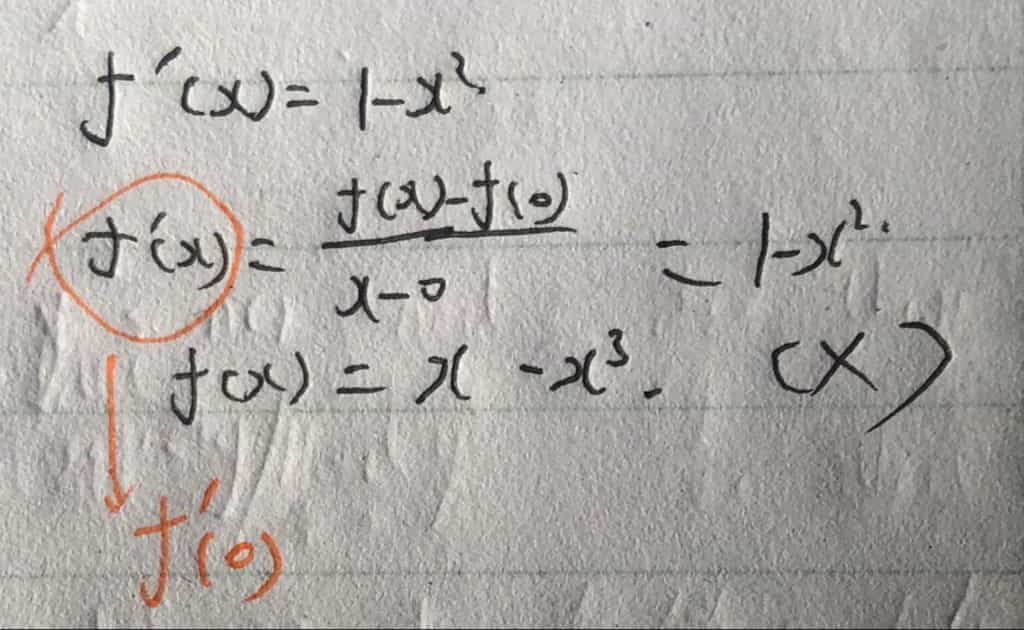 f'(x) = 1-x²
f'(x) = f(x)-f(0) / x-0 = 1-x².
f(x) = x -x³. (X)
f'(0)